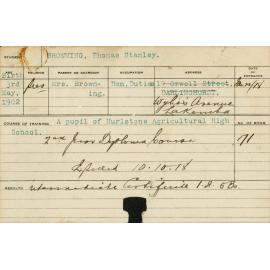 STUDENT BROWNING, Thomas Stanley.
BIRTH RELIGION PARENT OR GUARDIAN OCCUPATION ADDRESS DATE OF ENTRANCE
3rd May, 1902 Pres Mrs. Browning. Dom. Duties 17 Orwell Street, DARLINGHURST.
Wylbar Avenue
Lakemba
COURSE OF TRAINING A pupil of Hurlstone Agricultural High School. NO. OF ROOM
2nd year Diploma Course 71
Expelled 10.10.18
RESULTS Intermediate Certificate 1A. 5Bs.